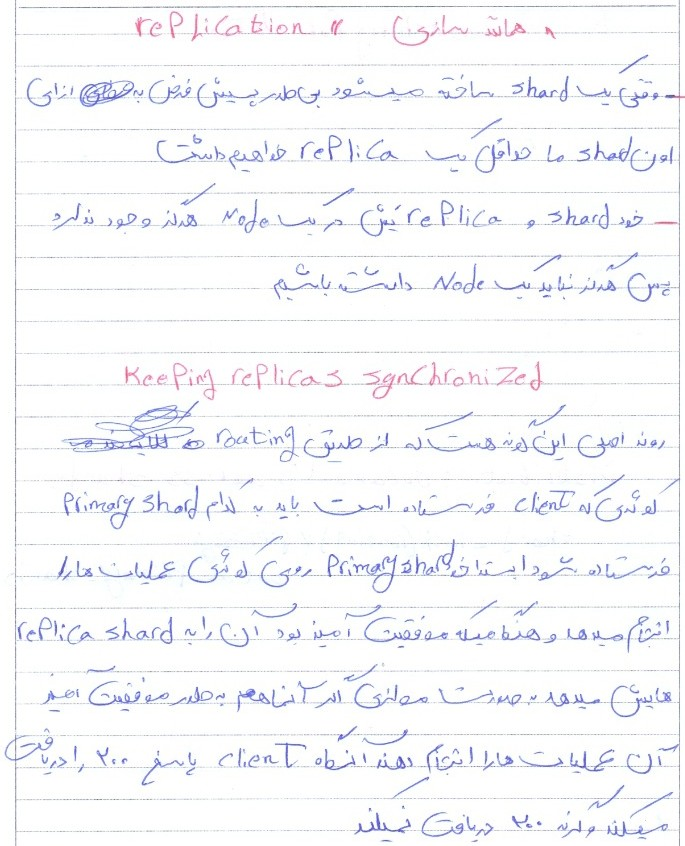 « همانند سازی » replication
- وقتی یک shard ساخته میشود بی طور پیش فرض به ازای
اون shard ما حداقل یک replica خواهیم داشت
- خود shard و replica یش در یک Node هرگز وجود ندارد
پس هرگز نباید یک Node داشته باشیم
Keeping replicas synchronized
روند اصلی این گونه هست که از طریق routing
کوئری که client فرستاده است باید به کدام Primary shard
فرستاده شود ابتدا خود Primary shard روی کوئری عملیات ها را
انجام میدهد و هنگامیکه موفقیت آمیز بود آن را به replica shard
هایش میدهد به صورت موازی اگر آنها هم به طور موفقیت آمیز
آن عملیات ها را انجام دهند آنگاه client پاسخ ۲۰۰ را دریافت
میکند وگرنه ۲۰۰ دریافت نمیکند